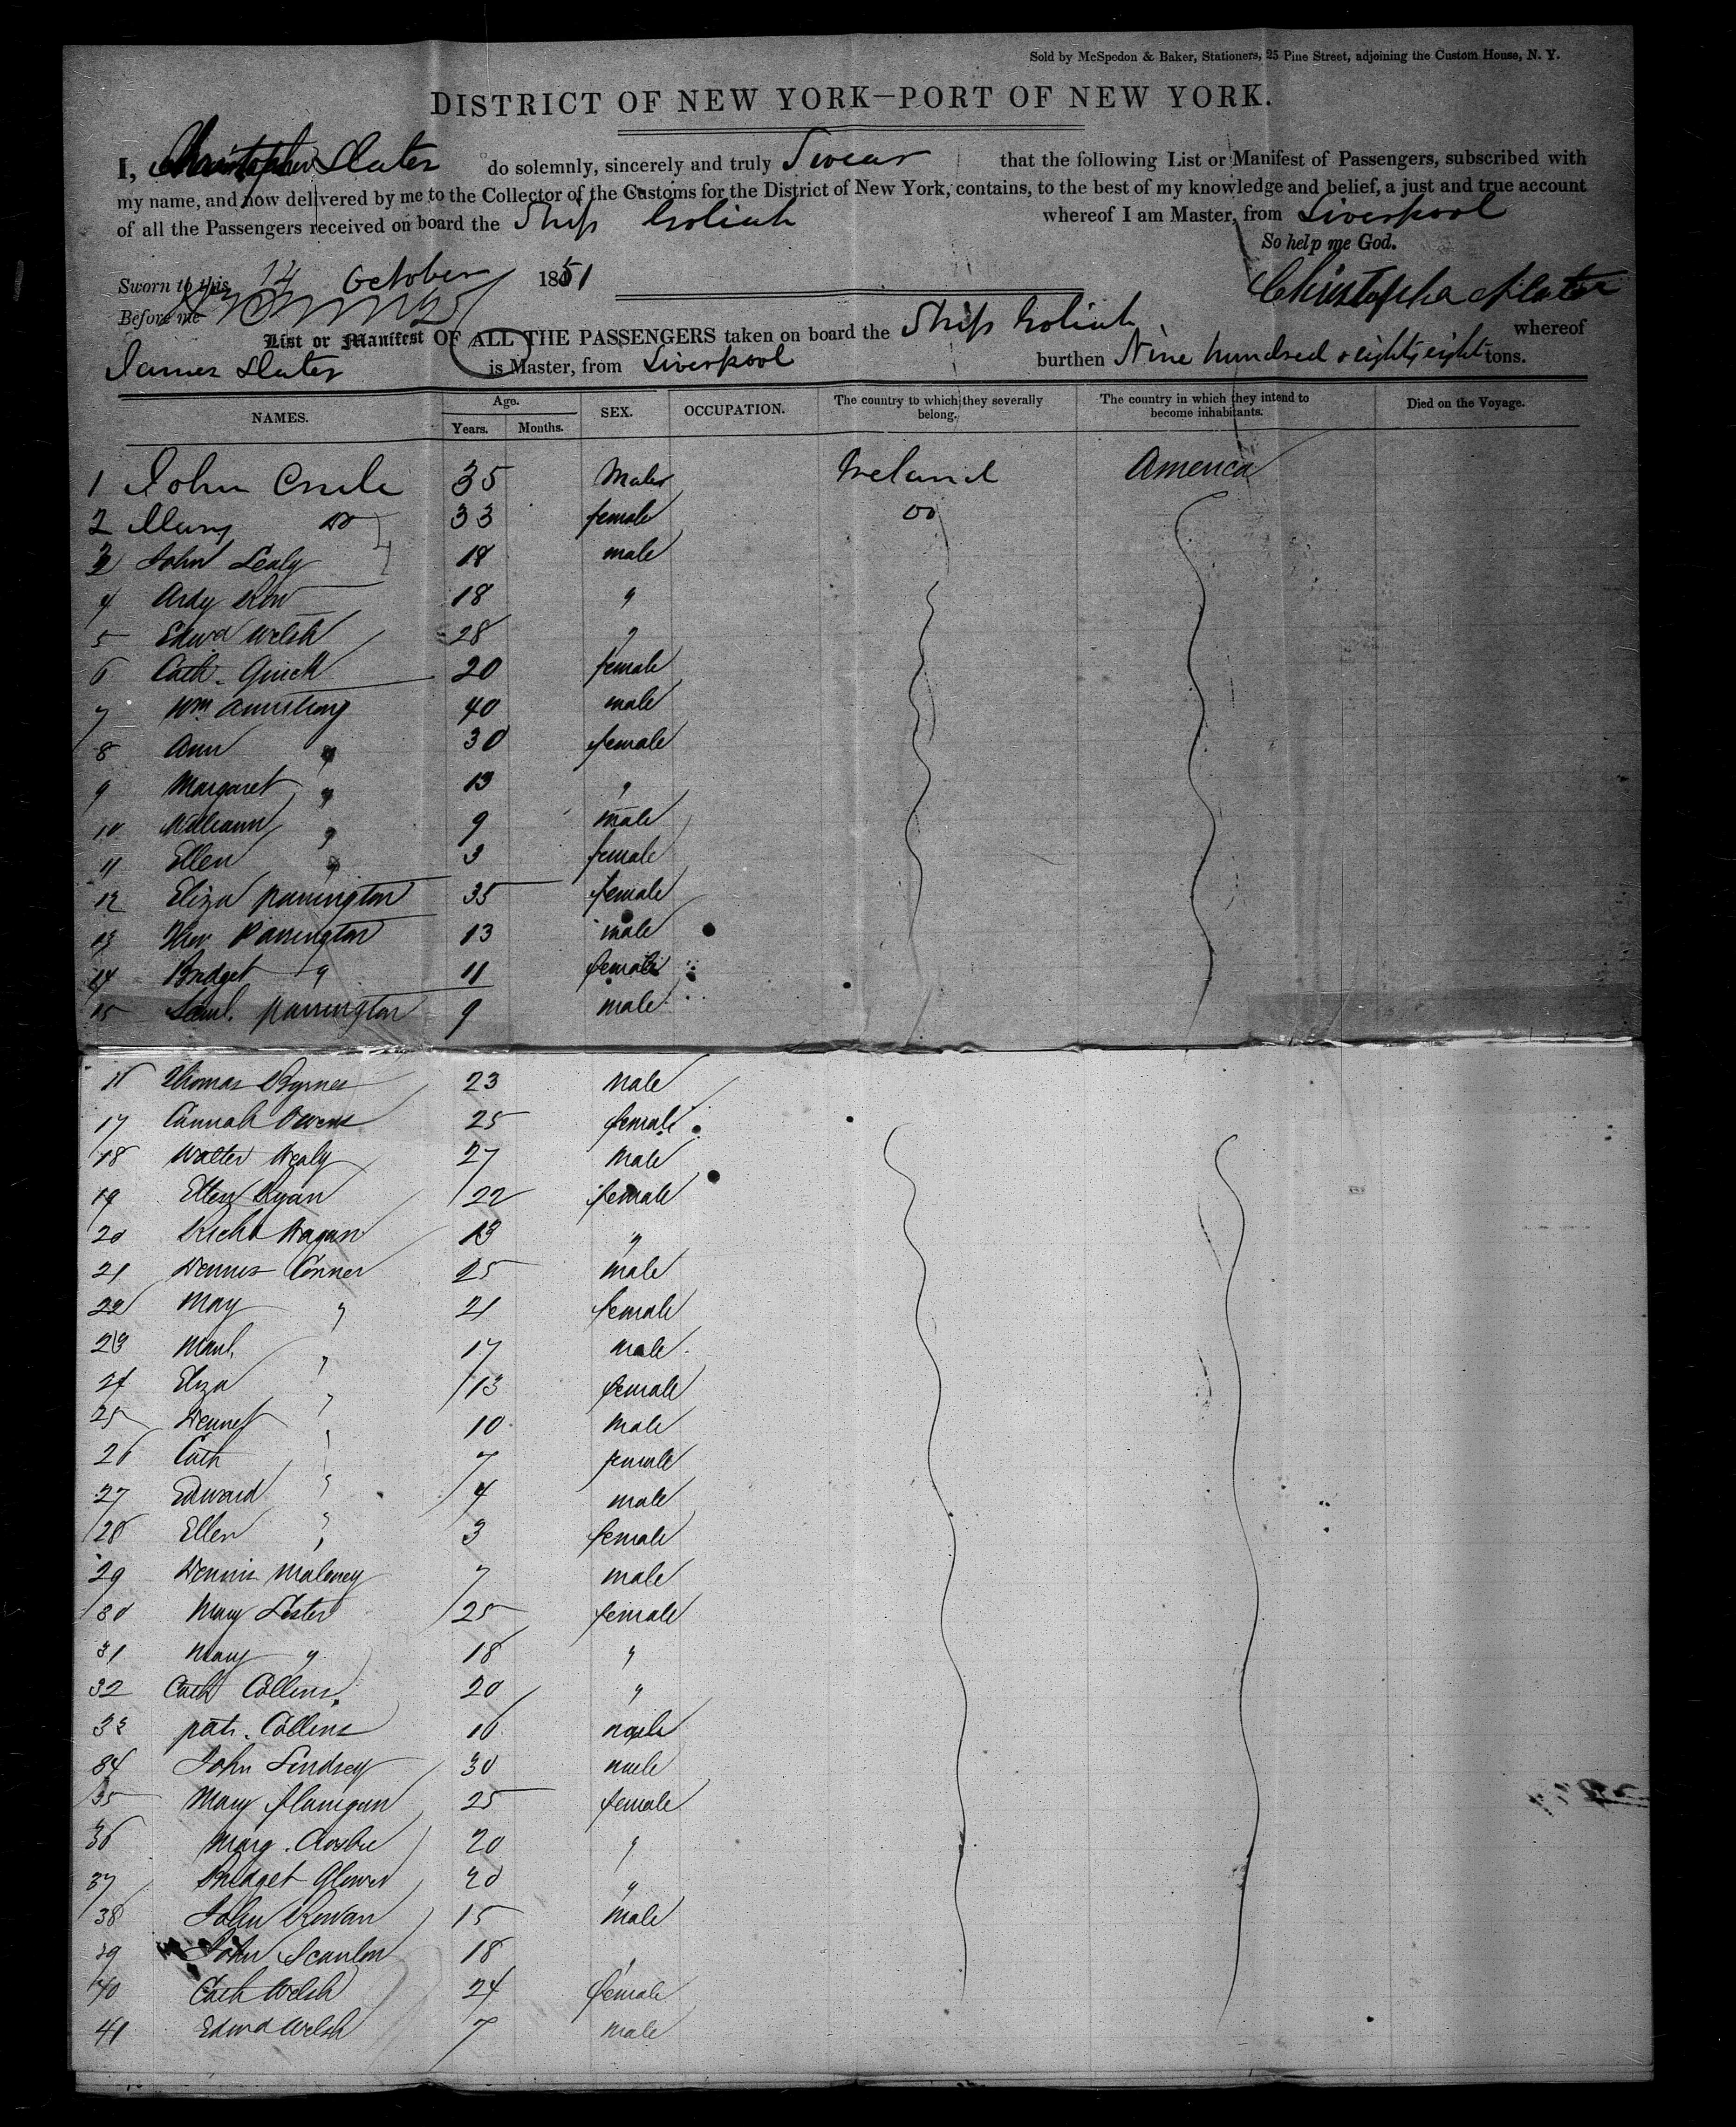 Sold by McSpedon & Baker, Stationers, 25 Pine Street, adjoining the Custom House, N. Y.
DISTRICT OF NEW YORK—PORT OF NEW YORK.
I, Christopher Slater do solemnly, sincerely and truly Swear that the following List or Manifest of Passengers, subscribed with
my name, and now delivered by me to the Collector of the Customs for the District of New York, contains, to the best of my knowledge and belief, a just and true account
of all the Passengers received on board the Ship Goliah whereof I am Master, from Liverpool
So help me God.
Sworn to this 14 October 1851
Christopher Slater
Before me
List or Manifest OF ALL THE PASSENGERS taken on board the Ship Goliah whereof
James Slater is Master, from Liverpool burthen Nine hundred & eighty eight tons.
NAMES. Age. Years. Months. SEX. OCCUPATION. The country to which they severally belong. The country in which they intend to become inhabitants. Died on the Voyage.
1 John 35 Male Ireland America
2 Mary Do 33 female Do
3 John Lealy 18 male
4 18 "
5 Edwd Welsh 28 "
6 Cath. 20 female
7 Wm Armstrong 40 male
8 Ann " 30 female
9 Margaret " 13 "
10 William " 9 male
11 Ellen " 3 female
12 Eliza Parrington 35 female
13 Parrington 13 male
14 Bridget " 11 female
15 Saml. Parrington 9 male
16 Thomas Byrnes 23 Male
17 Owens 25 female
18 Walter Healy 27 Male
19 Ellen Ryan 22 female
20 Richd 13 "
21 Dennis Conner 25 male
22 May " 21 female
23 " 17 male
24 Eliza " 13 female
25 " 10 male
26 Cath " 7 female
27 Edward " 4 male
28 Ellen " 3 female
29 Dennis Maloney 7 male
30 Mary Lester 25 female
31 Mary " 18 "
32 Cath Collins 20 "
33 Patr. Collins 16 male
34 John Lindsey 30 male
35 Mary Flanigan 25 female
36 Marg. 20 "
37 Bridget 20 "
38 John Rowan 15 male
39 John Scanlon 18 "
40 Cath Welsh 24 female
41 Edwd Welsh 7 male